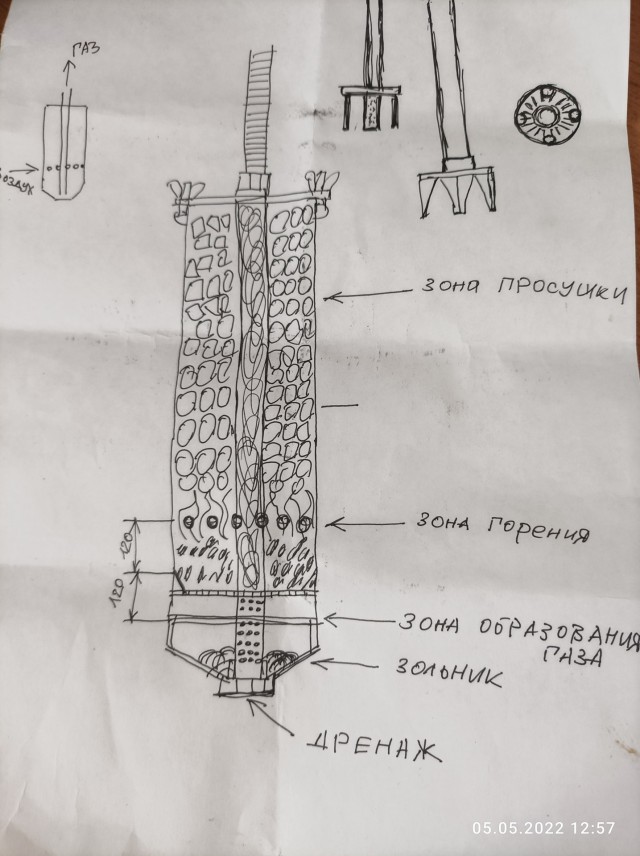 ГАЗ
ВОЗДУХ
ЗОНА ПРОСУШКИ
ЗОНА ГОРЕНИЯ
120
120
ЗОНА ОБРАЗОВАНИЯ
ГАЗА
ЗОЛЬНИК
ДРЕНАЖ
05.05.2022 12:57